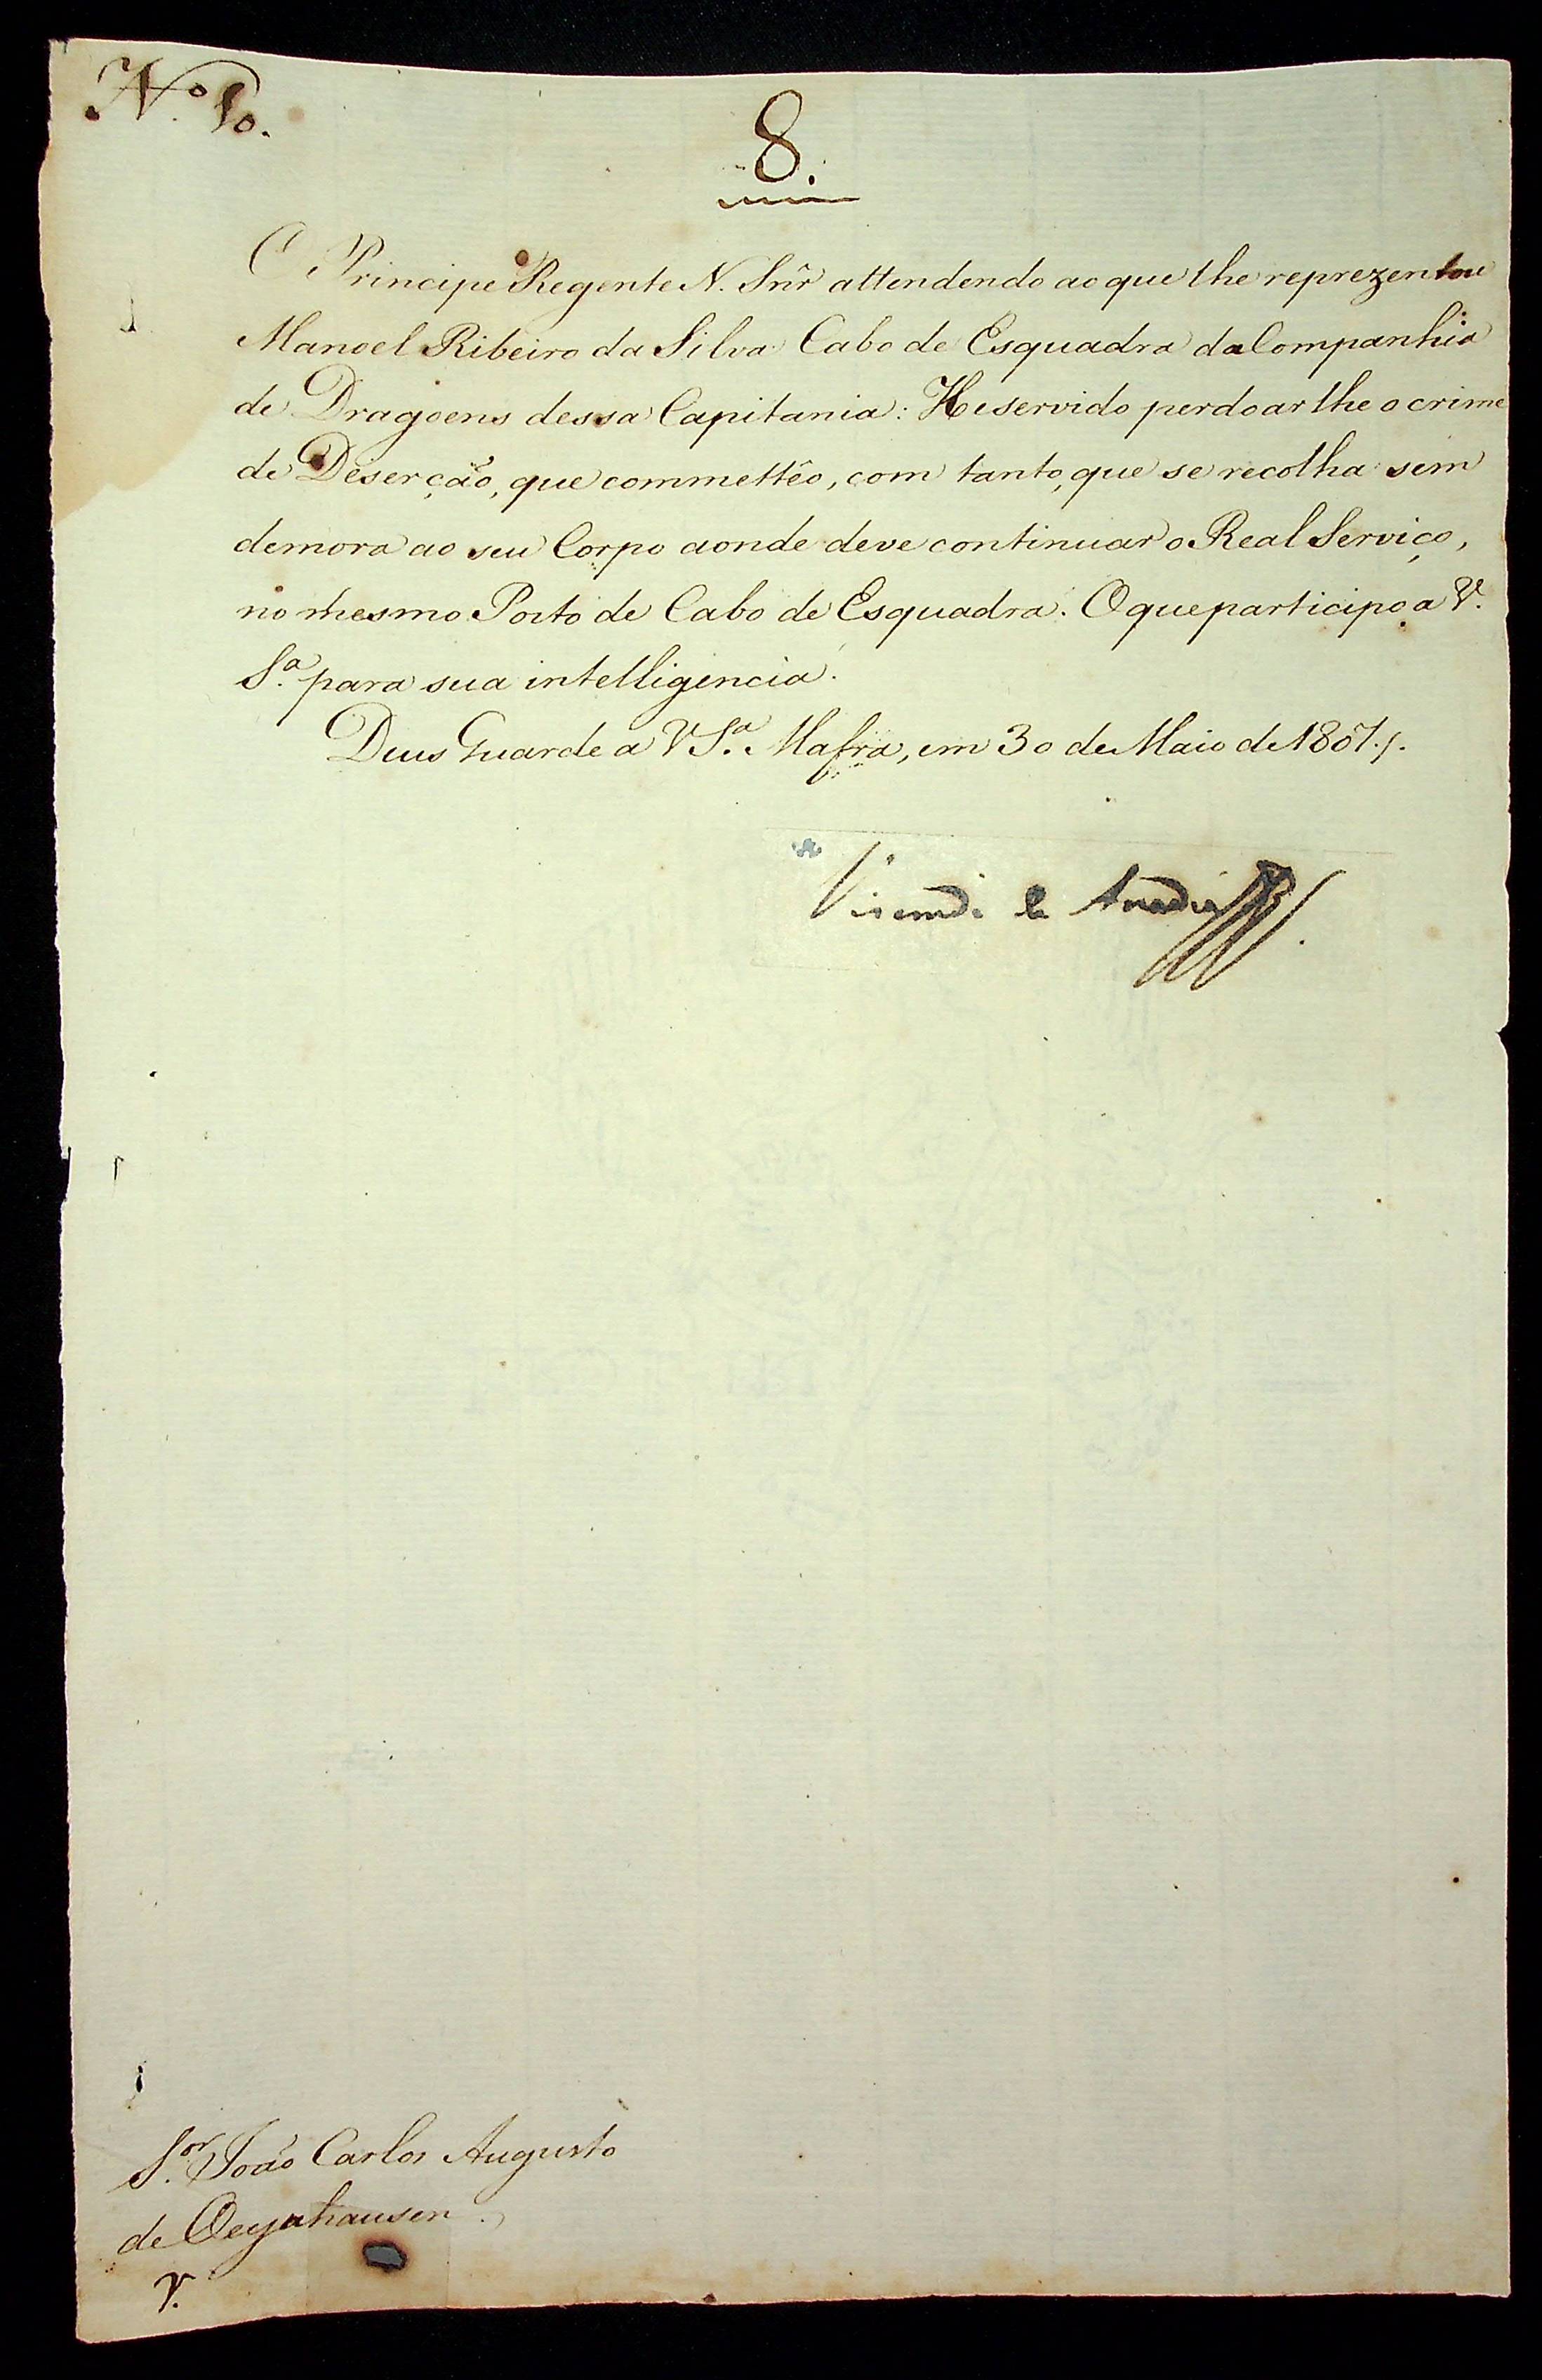 N.º 10.
8.
O Principe Regente N. Snr̃ attendendo ao que lhe reprezentou
Manoel Ribeiro da Silva Cabo de Esquadra da Companhia
de Dragoens dessa Capitania: He servido perdoar lhe o crime
de Deserção, que commettêo, com tanto, que se recolha sem
demora ao seu Corpo aonde deve continuar o Real Serviço,
no mesmo Posto de Cabo de Esquadra. O que participo a V.
S.ª para sua intelligencia.
Deus Guarde a V S.ª Mafra, em 30 de Maio de 1807.
Visconde de Anadia
S.or João Carlos Augusto
de Oeynhausen.